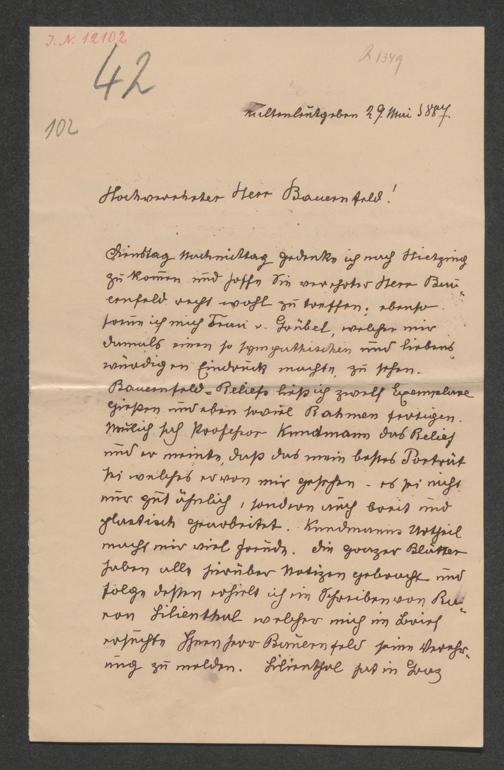 I. N. 12102
42
102
Kaltenleutgeben 29. Mai 1887.
Hochverehrter Herr Bauernfeld!
Dienstag Nachmittag gedenke ich nach Hietzing
zu kom̅en und hoffe Sie verehrter Herr Bau-
ernfeld recht wohl zu treffen; ebenso
freue ich mich Frau v. Grübel, welche mir
damals einen so sympathischen und liebens-
würdigen Eindruck machte, zu sehen.
Bauernfeld-Reliefs ließ ich zwölf Exemplare
gießen und eben soviel Rahmen fertigen.
Neulich sah Professor Kundmann das Relief
und er meinte, daß das mein bestes Porträt
sei welches er von mir gesehen – es sei nicht
nur gut ähnlich, sondern auch breit und
plastisch gearbeitet. Kundmanns Urtheil
macht mir viel Freude. Die Grazer Blätter
haben alle hierüber Notizen gebracht und
folge dessen erhielt ich ein Schreiben von Ba-
ron Lilienthal welcher mich im Brief
ersuchte Ihnen Herr Bauernfeld seine Verehr-
ung zu melden. Lilienthal hat in Graz